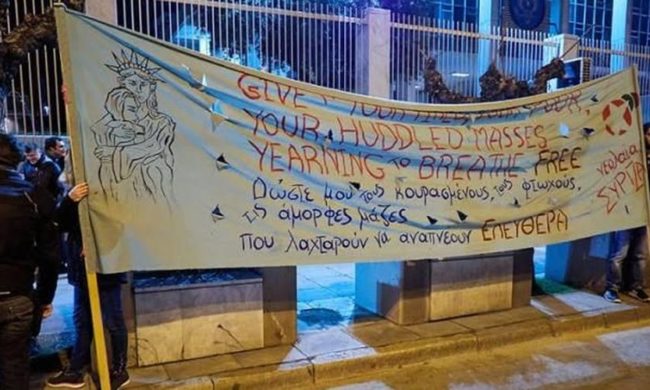 GIVE YOUR
YOUR HUDDLED MASSES
YEARNING TO BREATHE FREE
Δώστε μου τους κουρασμένους, τους φτωχούς,
τις άμορφες μάζες
που λαχταρούν να αναπνεύσουν ΕΛΕΥΘΕΡΑ
νεολαία
ΣΥΡΙΖΑ